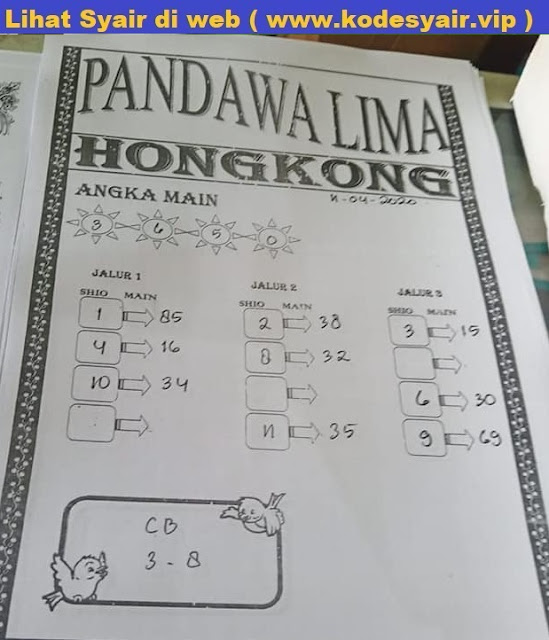 Lihat Syair di web ( www.kodesyair.vip )
PANDAWA LIMA
HONGKONG
ANGKA MAIN
11-04-2020
3 6 5 0
JALUR 1
SHIO MAIN
1 85
4 16
10 34
JALUR 2
SHIO MAIN
2 38
8 32
11 35
JALUR 3
SHIO MAIN
3 15
6 30
9 69
CB
3 - 8